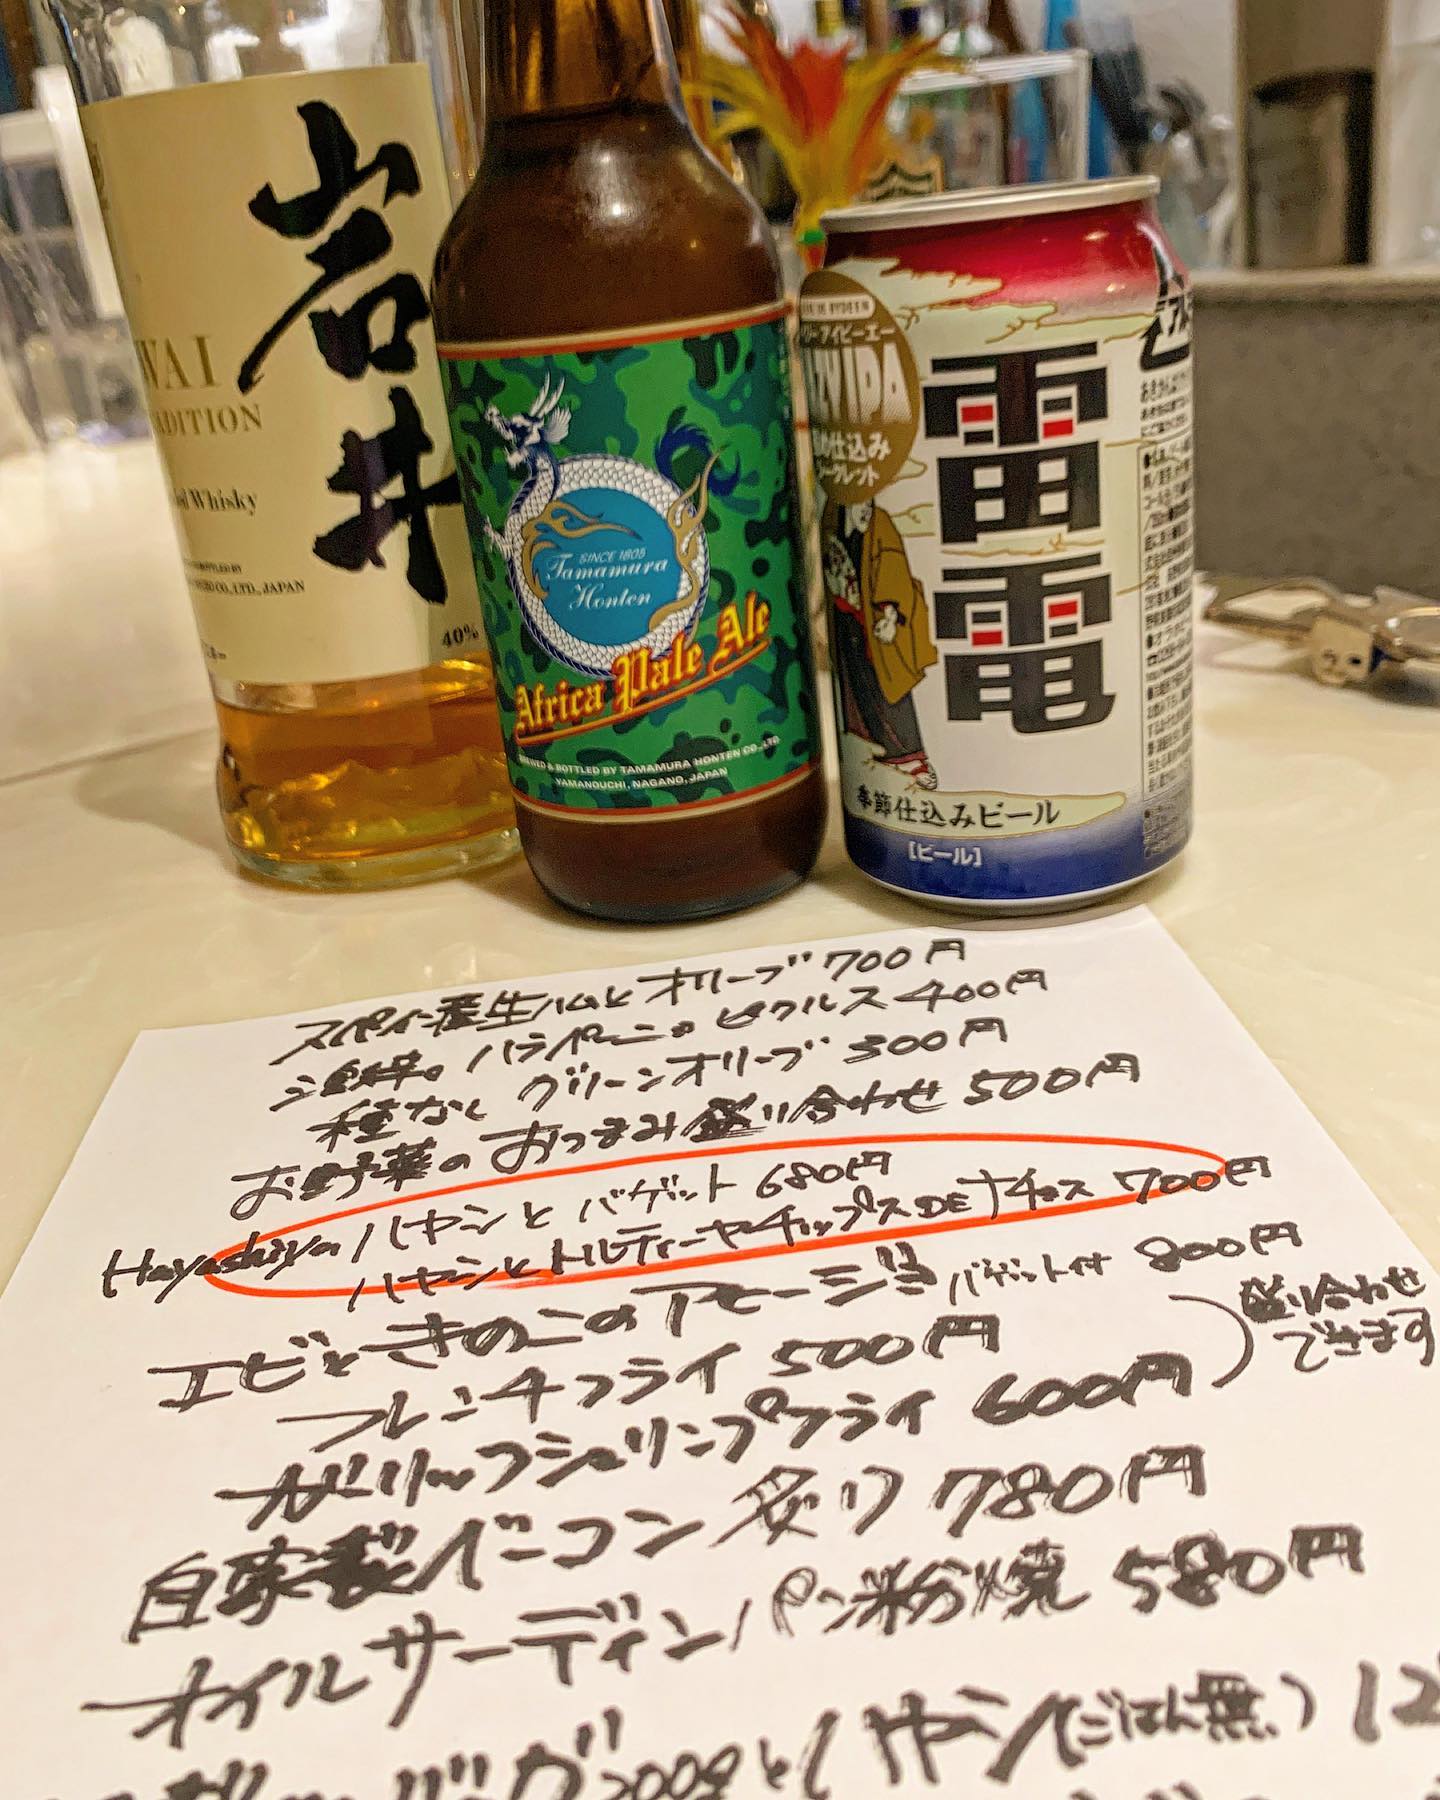 岩井
WAI
ADITION
Whisky
CO., LTD., JAPAN
40%
SINCE 1805
Tamamura
Honten
Africa Pale Ale
BREWED & BOTTLED BY TAMAMURA HONTEN CO., LTD
YAMANOUCHI, NAGANO, JAPAN
アイピーエー
IPA
仕込み
雷電
季節仕込みビール
[ビール]
スペイン産生ハムとオリーブ 700円
ハラペーニョピクルス 400円
種なしグリーンオリーブ 500円
お野菜のおつまみ盛り合わせ 500円
Hayashiya ハヤシとバゲット 680円
ハヤシとトルティーヤチップスDEナチョス 700円
エビときのこのアヒージョ バゲット付 800円
フレンチフライ 500円
ガーリックシュリンプフライ 600円
盛り合わせ
できます
自家製ベーコン炙り 780円
オイルサーディンパン粉焼 580円
200gとハヤシ(ごはん無) 12